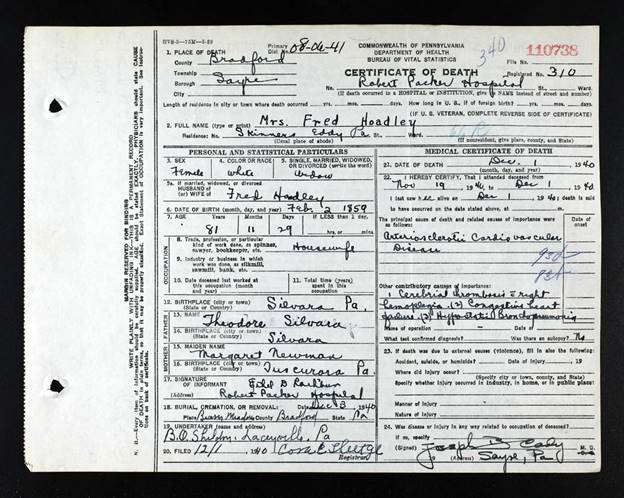 HVS-5-75M-5-29
Primary Dist. No. 08-06-41
COMMONWEALTH OF PENNSYLVANIA
DEPARTMENT OF HEALTH
BUREAU OF VITAL STATISTICS
340
110738
File No.
1. PLACE OF DEATH
County Bradford
Township
Borough Sayre
City
CERTIFICATE OF DEATH
Registered No. 310
No. Robert Packer Hospital St. Ward.
(If death occurred in a HOSPITAL or INSTITUTION, give its NAME instead of street and number)
Length of residence in city or town where death occurred yrs. mos. days.
How long in U. S. if of foreign birth? yrs. mos. days.
IF U. S. VETERAN, COMPLETE REVERSE SIDE OF CERTIFICATE
2. FULL NAME (type or print) Mrs. Fred Hoadley
Residence: No. Skinners Eddy Pa St. Ward
(Usual place of abode)
(If nonresident, give place, county, and State)
PERSONAL AND STATISTICAL PARTICULARS
3. SEX Female
4. COLOR OR RACE White
5. SINGLE, MARRIED, WIDOWED, OR DIVORCED (write the word) Widow
5a. If married, widowed, or divorced
HUSBAND OF (or) WIFE OF Fred Hoadley
6. DATE OF BIRTH (month, day, and year) Feb 2 1859
7. AGE Years 81 Months 11 Days 29 If LESS than 1 day, hrs. or min.
OCCUPATION
8. Trade, profession, or particular kind of work done, as spinner, sawyer, bookkeeper, etc. Housewife
9. Industry or business in which work was done, as silk mill, sawmill, bank, etc.
10. Date deceased last worked at this occupation (month and year)
11. Total time (years) spent in this occupation
12. BIRTHPLACE (city or town) Silvara Pa.
(State or Country)
FATHER
13. NAME Theodore Silvara
14. BIRTHPLACE (city or town) Silvara
(State or Country)
MOTHER
15. MAIDEN NAME Margaret Newman
16. BIRTHPLACE (city or town) Tuscarora Pa.
(State or Country)
17. SIGNATURE OF INFORMANT
(Address) Robert Packer Hospital
18. BURIAL, CREMATION, OR REMOVAL Date Dec 3 1940
Place County Bradford State Pa
19. UNDERTAKER (name type or print)
(Address) Laceyville, Pa
20. FILED 12/1 1940
Registrar.
MEDICAL CERTIFICATE OF DEATH
21. DATE OF DEATH Dec. 1 1940
22. I HEREBY CERTIFY, That I attended deceased from
Nov 19 1940, to Dec 1 1940
I last saw her alive on Dec 1 1940; death is said to have occurred on the date stated above.
The principal cause of death and related causes of importance were as follows:
Arteriosclerotic Cardiovascular
Disease
Other contributory causes of importance:
Cerebral thrombosis c right
hemiplegia. (2) Congestive heart
failure (3) Hypostatic Bronchopneumonia
Name of operation Date of
What test confirmed diagnosis? Was there an autopsy? No
23. If death was due to external causes (violence), fill in also the following:
Accident, suicide, or homicide? Date of injury 19
Where did injury occur?
(Specify city or town, county, and State)
Specify whether injury occurred in industry, in home, or in public place
Manner of injury
Nature of injury
24. Was disease or injury in any way related to occupation of deceased?
If so, specify
(Signed) Joseph B Cady M. D.
(Address) Sayre, Pa
MARGIN RESERVED FOR BINDING